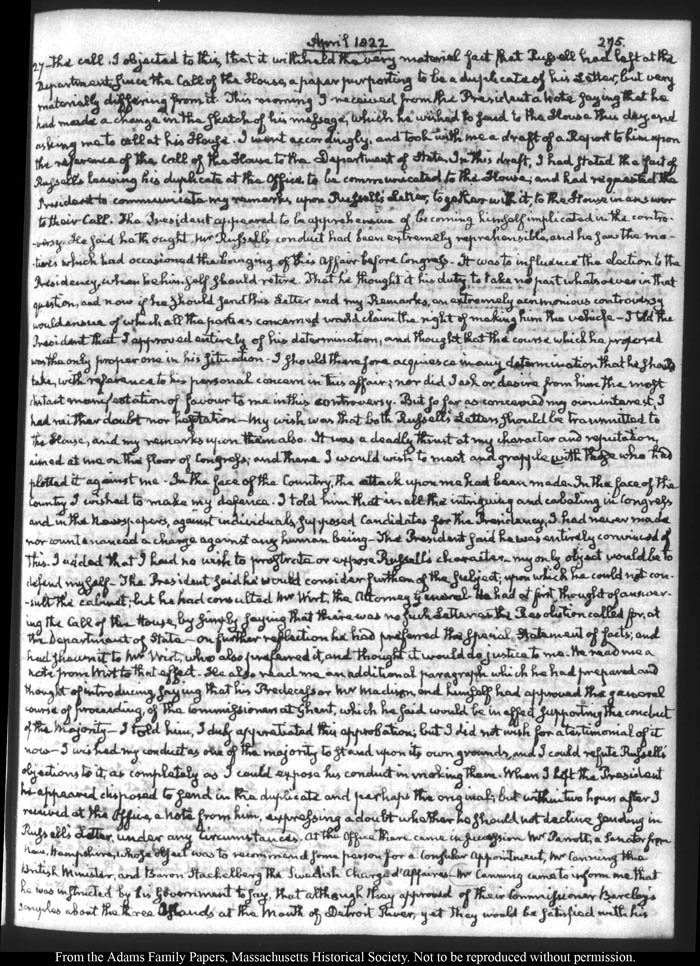 April 1822
275.
27- the call. I objected to this, that it withheld the very material fact that Russell had left at the
Department, since the Call of the House, a paper purporting to be a duplicate of his Letter, but very
materially differing from it. This morning I received from the President a Note saying that he
had made a change in the sketch of his message, which he wished to send to the House this day, and
asking me to call at his House. I went accordingly, and took with me a draft of a Report to him upon
the reference of the Call of the House to the Department of State. In this draft, I had stated the fact of
Russell's leaving his duplicate at the Office, to be communicated to the House; and had requested the
President to communicate my remarks upon Russell's Letter, together with it, to the House in answer
to their Call. The President appeared to be apprehensive of becoming himself implicated in the contro-
-versy. He said he thought Mr Russell's conduct had been extremely reprehensible, and he saw the mo-
-tives which had occasioned the bringing of this affair before Congress. It was to influence the election to the
Presidency, when he himself should retire. That he thought it his duty to take no part whatsoever in that
question, and now if he should send this Letter and my Remarks, an extremely acrimonious controversy
would ensue of which all the parties concerned would claim the right of making him the vehicle- I told the
President that I approved entirely of his determination, and thought that the course which he proposed
was the only proper one in his situation- I should therefore acquiesce in any determination that he should
take, with reference to his personal concern in this affair; nor did I ask or desire from him the most
distant manifestation of favour to me in this controversy. But so far as concerned my own interest, I
had neither doubt nor hesitation- My wish was that both Russell's Letters should be transmitted to
the House, and my remarks upon them also. It was a deadly thrust at my character and reputation,
aimed at me on the floor of Congress; and there I would wish to meet and grapple with those who had
plotted it against me- In the face of the Country, the attack upon me had been made. In the face of the
Country I wished to make my defence. I told him that in all the intriguing and cabaling in Congress
and in the Newspapers, against individuals, supposed Candidates for the Presidency, I had never made
nor countenanced a charge against any human being- The President said he was entirely convinced of
this. I added that I had no wish to prostrate or expose Russell's character- my only object would be to
defend myself- The President said he would consider further of the subject; upon which he could not con-
-sult the cabinet; but he had consulted Mr Wirt, the Attorney General. He had at first thought of answer-
ing the Call of the House, by simply saying that there was no such Letter as the Resolution called for, at
the Department of State- on further reflection he had preferred the special statement of facts; and
had shown it to Mr Wirt, who also preferred it, and thought it would do justice to me. He read me a
note from Wirt to that effect. He also read me an additional paragraph which he had prepared and
thought of introducing, saying that his Predecessor Mr Madison, and himself had approved the general
course of proceeding, of the Commissioners at Ghent, which he said would be in effect supporting the conduct
of the Majority- I told him, I duly appreciated this approbation; but I did not wish for a testimonial of it
now- I wished my conduct as one of the majority to stand upon its own grounds, and I could refute Russell's
objections to it, as completely as I could expose his conduct in making them. When I left the President
he appeared disposed to send in the duplicate and perhaps the original; but within two hours after I
received at the Office, a Note from him, expressing a doubt whether he should not decline sending in
Russell's Letter, under any circumstances. At the Office there came in succession Mr Parrott, a Senator from
New-Hampshire, whose object was to recommend some person for a Consular Appointment, Mr Canning the
British Minister, and Baron Stackelberg the Swedish Chargé d'Affaires- Mr Canning came to inform me that
he was instructed by his Government to say, that although they approved of their Commissioner Barclay's
scruples about the three Islands at the Mouth of Detroit River, yet they would be satisfied with his
From the Adams Family Papers, Massachusetts Historical Society. Not to be reproduced without permission.